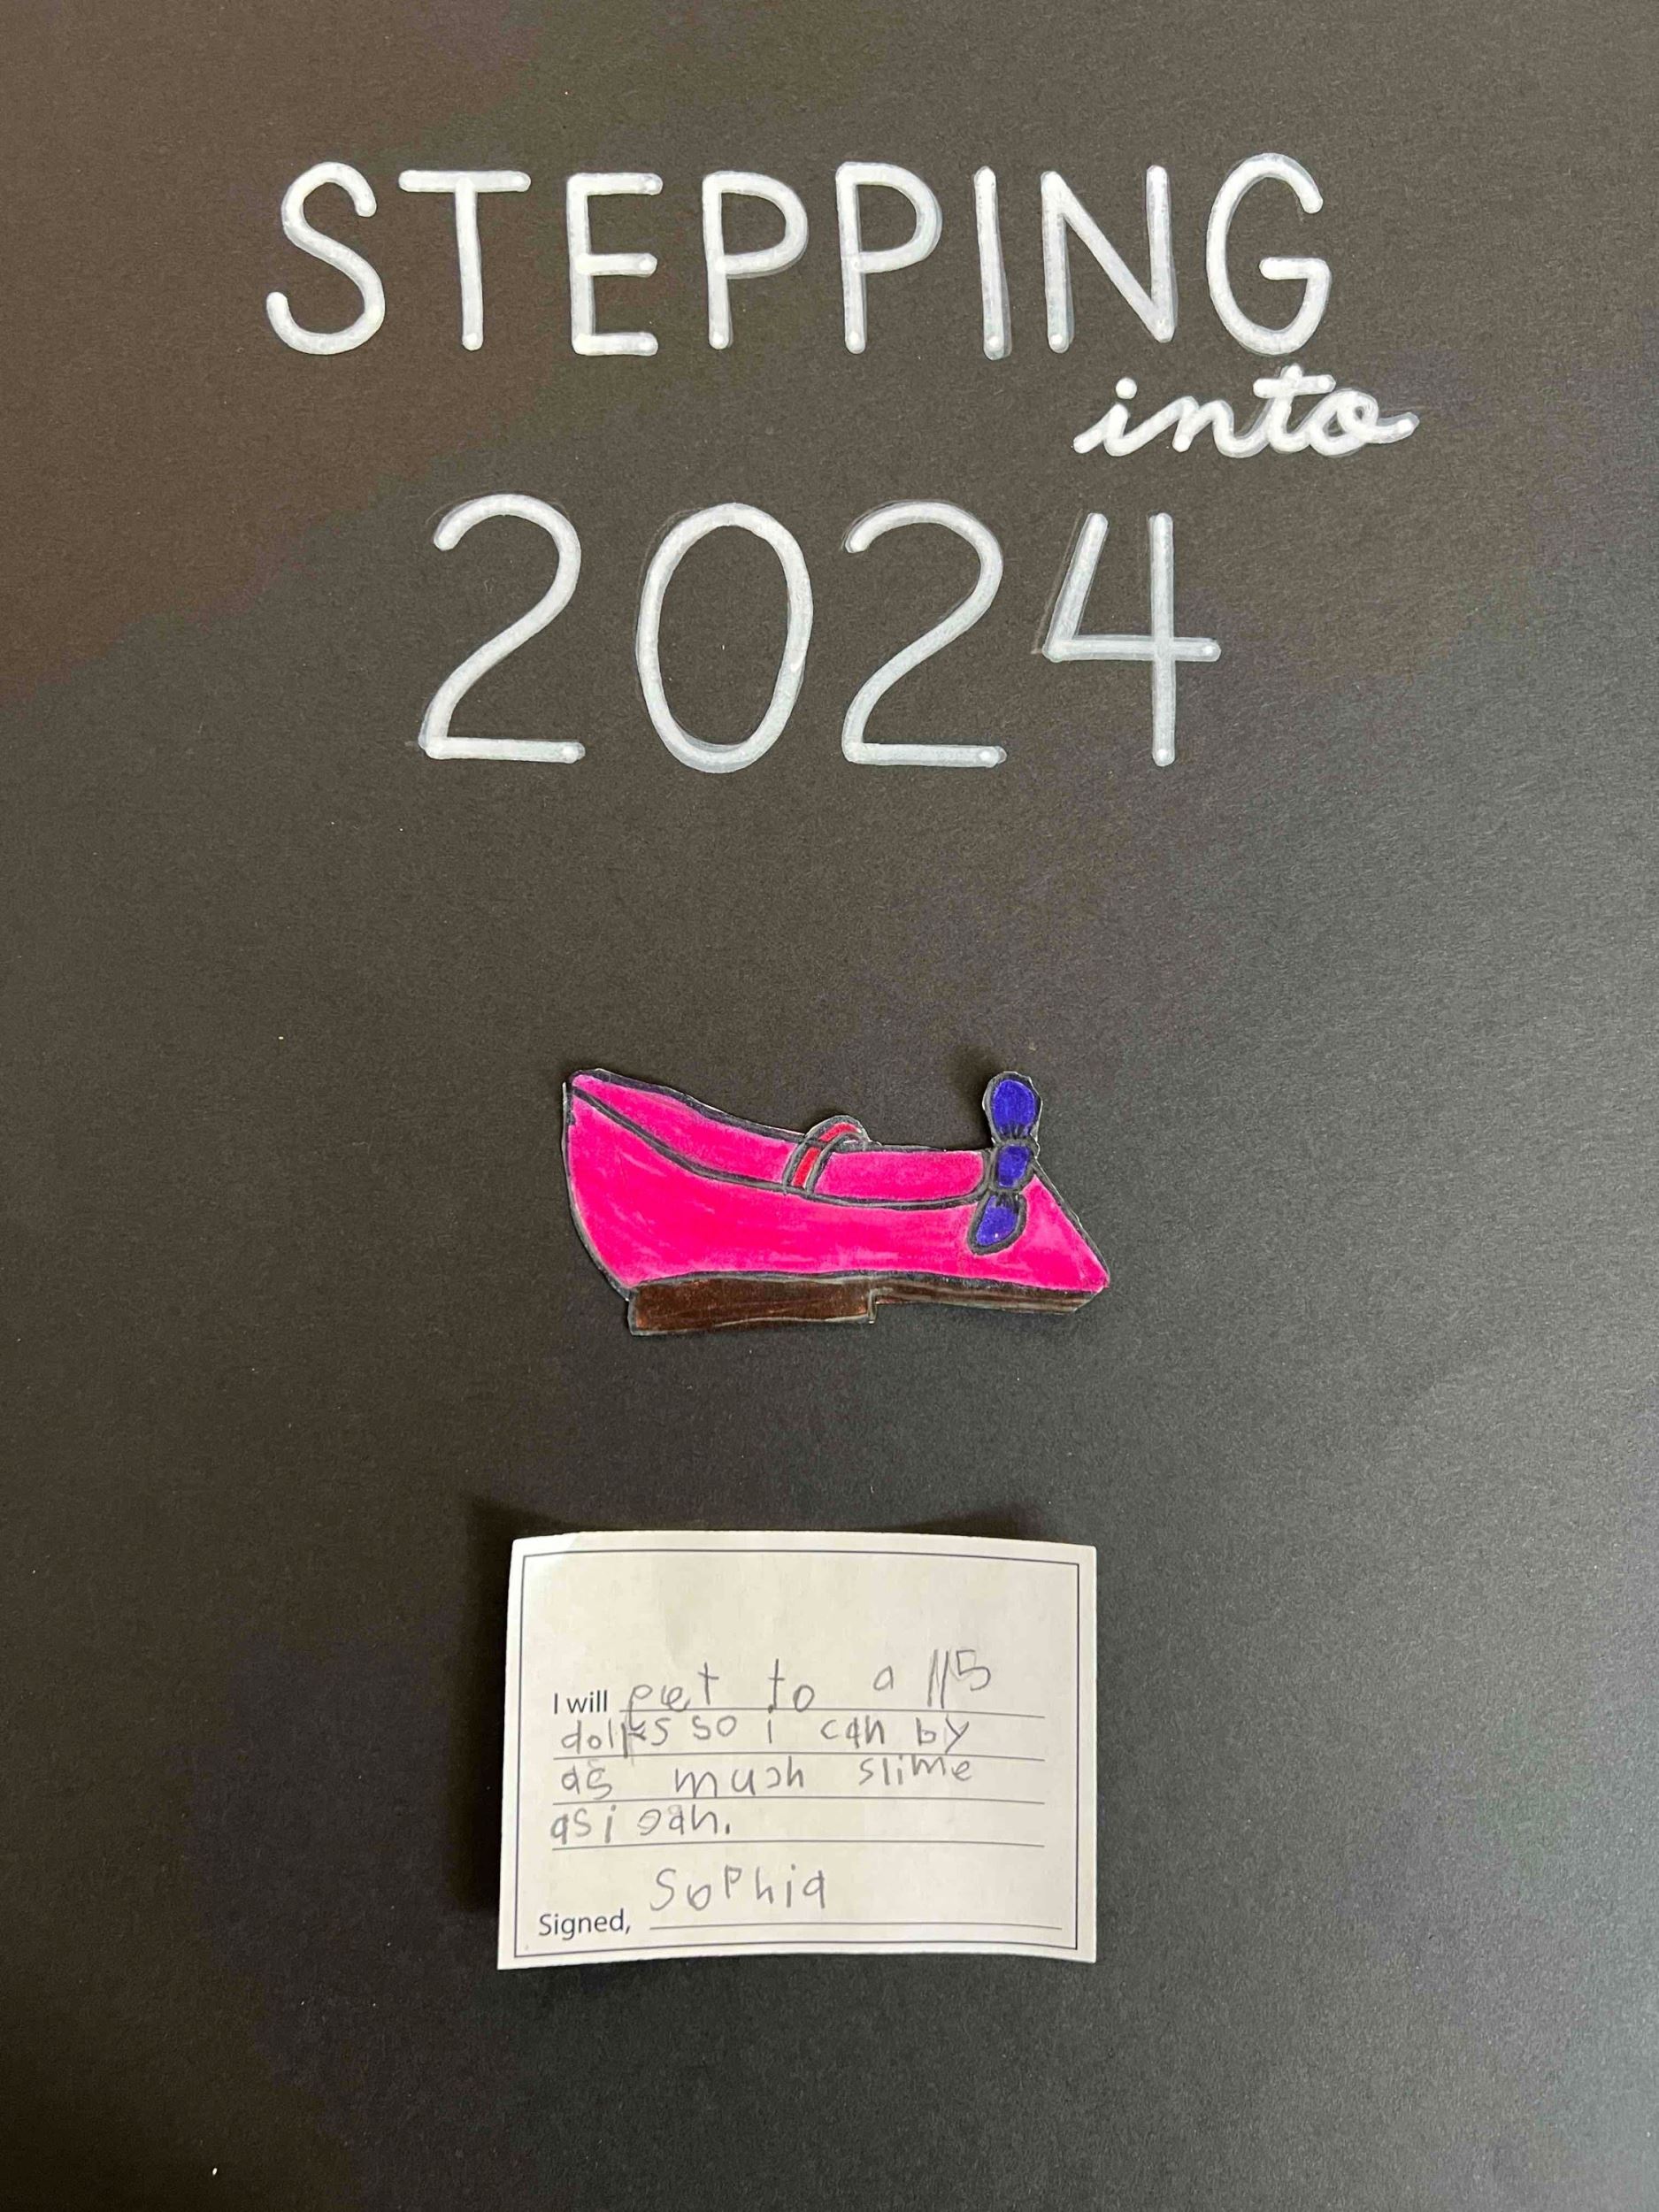 STEPPING
into
2024
I will get to a 115
dollrs so i can by
as much slime
as i can.
Sophia
Signed,